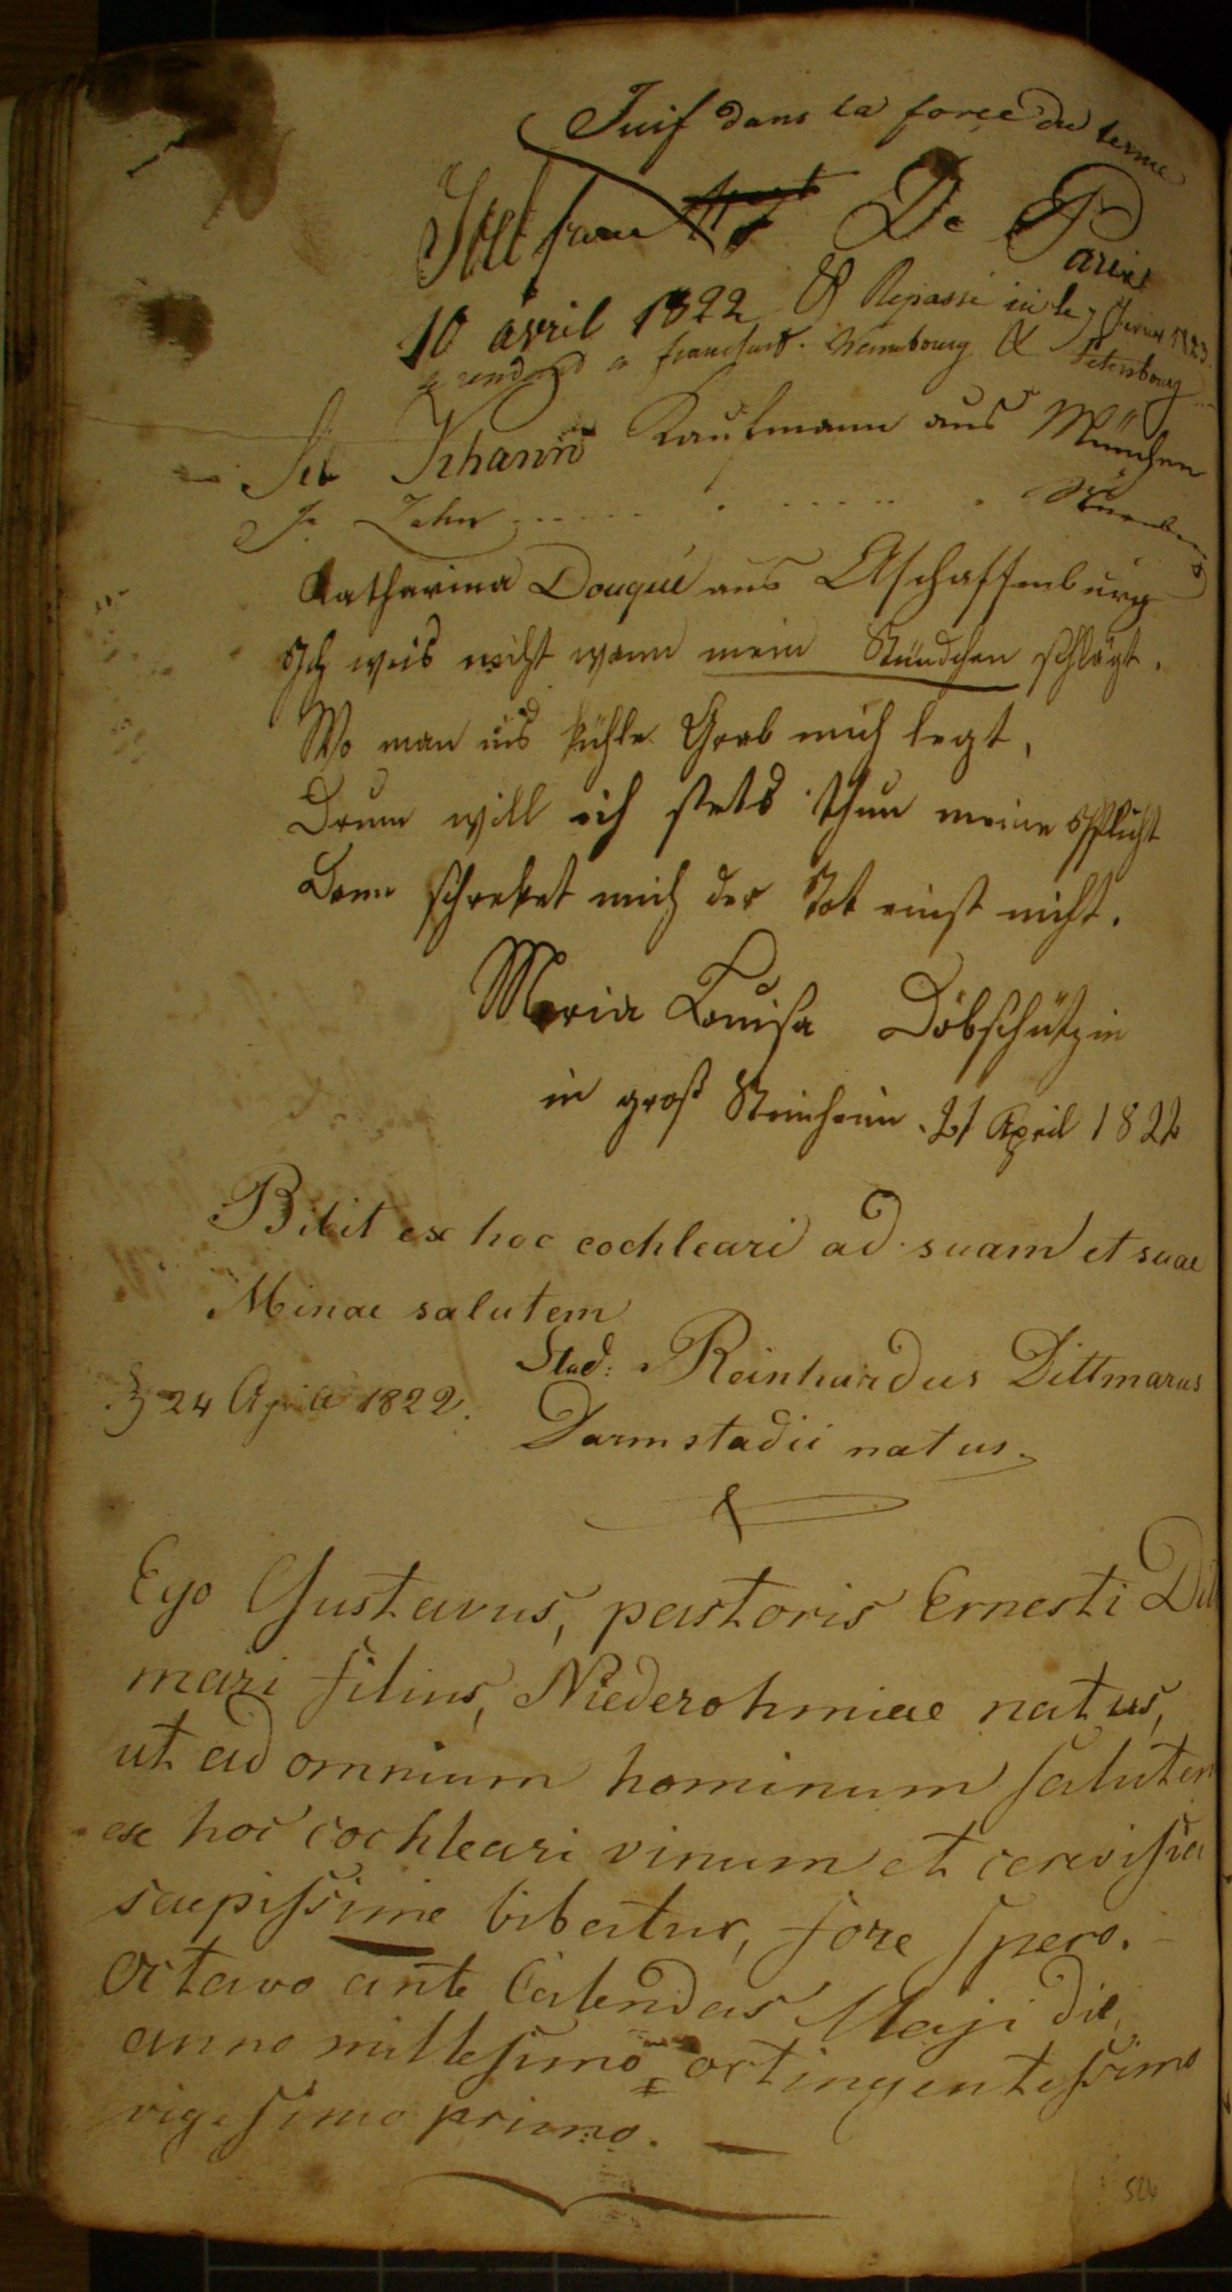 Juif dans la force du terme
De Paris
10 avril 1822 & Repassé ici le 7 1823.
a francfort. & Petersbourg
Kaufmann aus München
Zahn
Katharina Douqué aus Aschaffenburg
Ich weis nicht wann mein Stündchen schlägt,
Wo man ins kühle Grab mich legt,
Drum will ich stets thun meine Pflicht
Dann schreket mich der Tot einst nicht.
Maria Louisa Döbschützin
in groß Steinheim. 21 April 1822
Bibit ex hoc cochleari ad suam et suae
Minae salutem
Stud: Reinhardus Dittmarus
24 Aprile 1822.
Darmstadii natus.
Ego Gustavus, pastoris Ernesti Dit
mari filius, Niederohmiae natus,
ut ad omnium hominum salutem
ex hoc cochleari vinum et cerevisia
saepissime bibatur, fore spero.
Octavo ante Calendas Maji die,
anno millesimo octingentesimo
vigesimo primo.
524